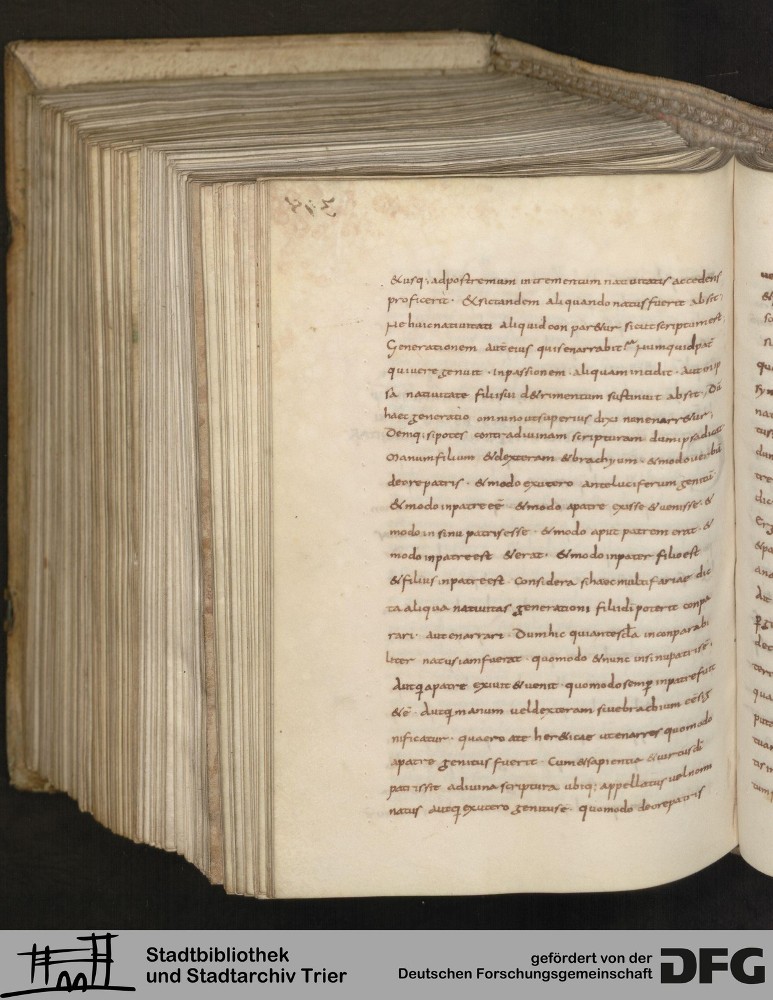 &usq; adpostremum incrementum natiuitatis accedens
proficerit · & sic tandem aliquando natus fuerit absit ·
Ne huic natiuitati aliquid conpar&ur sicut scriptum est
Generationem aut eius quis enarrabit Numquid pat
qui uere genuit · in passionem · aliquam incidit · Aut in ip
sa natiuitate filii sui d&rimentum sustinuit absit ·
haec generatio omnino ut superius dixi non enarr&ur ·
Deniq; si potes contra diuinam scripturam dum
manum filium & dexteram & brachium · & modo uerbum
de ore patris · & modo ex utero ante luciferum genitū
& modo in patre eē · & modo a patre exisse & uenisse · &
modo in sinu patris esse · & modo aput patrem erat · &
modo in patre est & erat · & modo in pater filio est
& filius in patre est · Considera si haec multifariae dic
ta aliqua natiuitas generationi filii di poterit conpa
rari · aut enarrari · Dum hic qui ante scla inconparabi
liter natus iam fuerat · quomodo & nunc in sinu patris ē ·
Aut q a patre exiuit & uenit · quomodo semp in patre fuit
& ē · Aut q manum uel dexteram siue brachium eēsig
nificatur · quaero a te her&icae ut enarres quomodo
a patre genitus fuerit · Cum & sapientia & uirtus di
patris sit a diuina scriptura ubiq; appellatus uel nomi
natus aut q ex utero genitus ē · quomodo de ore patris
Stadtbibliothek
und Stadtarchiv Trier
gefördert von der
Deutschen Forschungsgemeinschaft
DFG